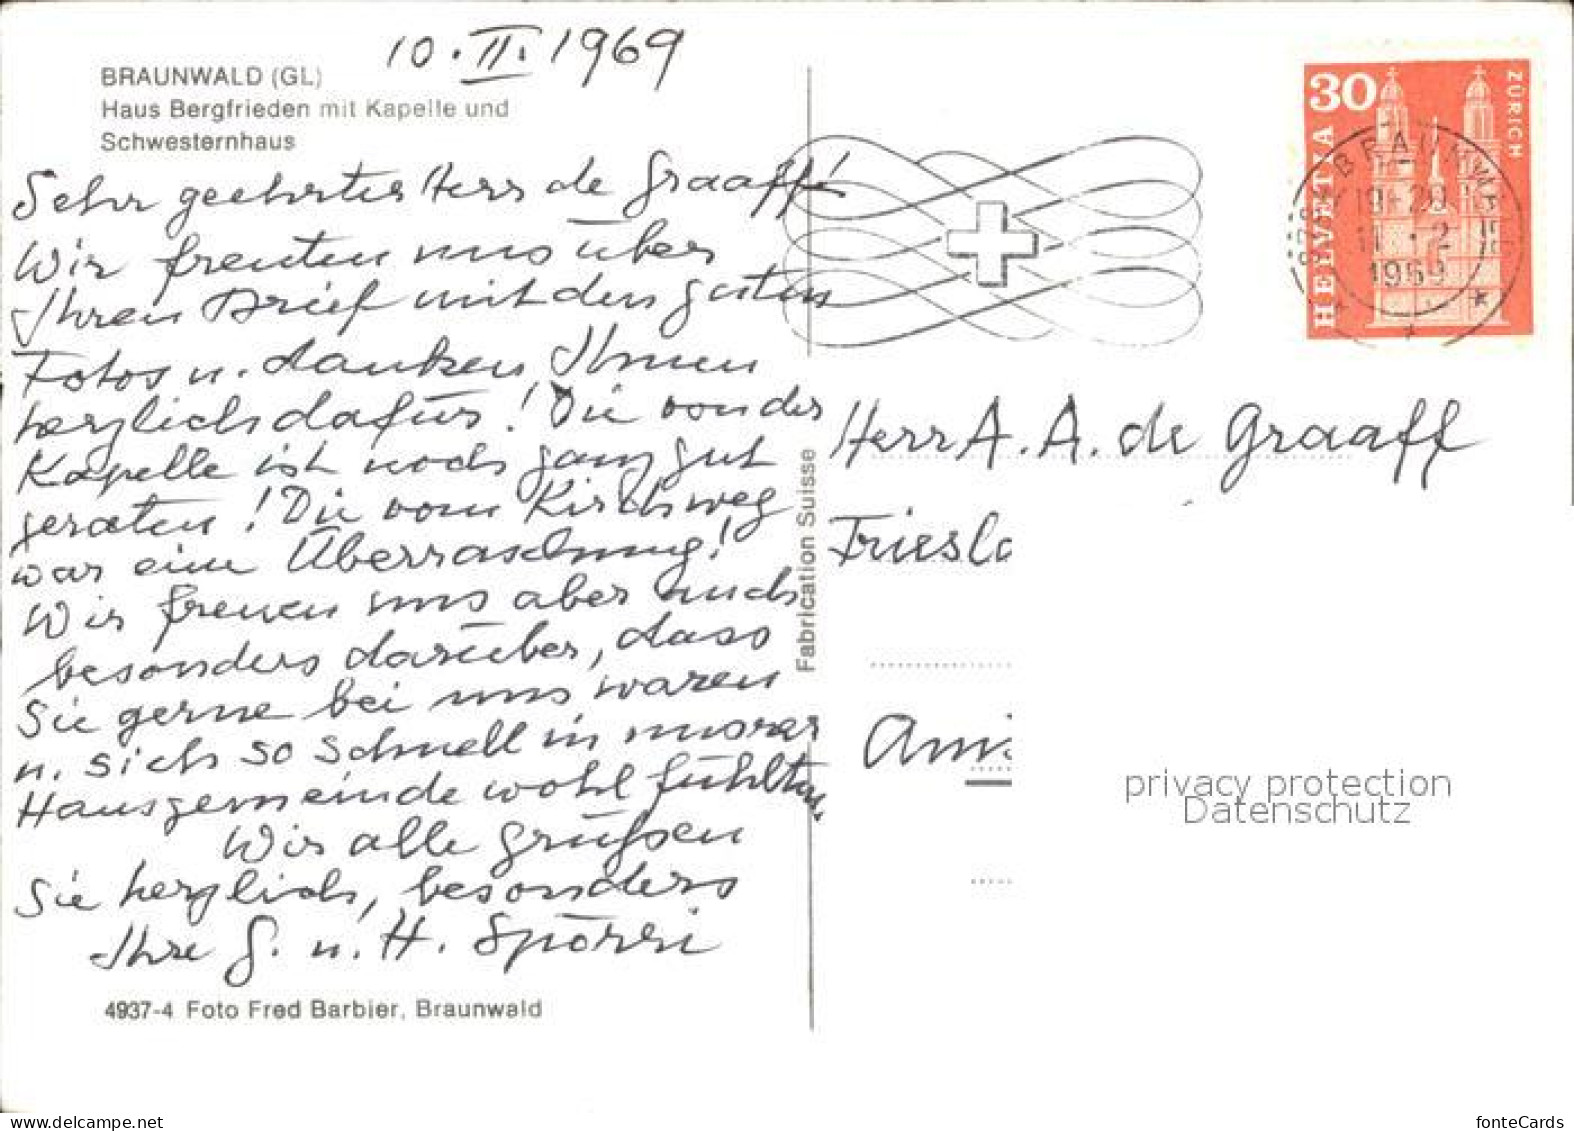 10. II. 1969
BRAUNWALD (GL)
Haus Bergfrieden mit Kapelle und
Schwesternhaus
Sehr geehrter Herr de Graaff!
Wir freuten uns über
Ihren Brief mit den guten
Fotos u. danken Ihnen
herzlich dafür! Die von der
Kapelle ist noch ganz gut
geraten! Die vom Kirchweg
war eine Überraschung!
Wir freuen uns aber auch
besonders darüber, dass
Sie gerne bei uns waren
u. sich so schnell in unserer
Hausgemeinde wohl fühlten.
Wir alle grüßen
Sie herzlich, besonders
Ihre G. u. H. Spörri
4937-4 Foto Fred Barbier, Braunwald
Fabrication Suisse
30
HELVETIA
ZÜRICH
BRAUNWALD
19-20
11.-2
1969
Herr A. A. de Graaff
Friesla
Ams
privacy protection
Datenschutz
www.delcampe.net
fonteCards